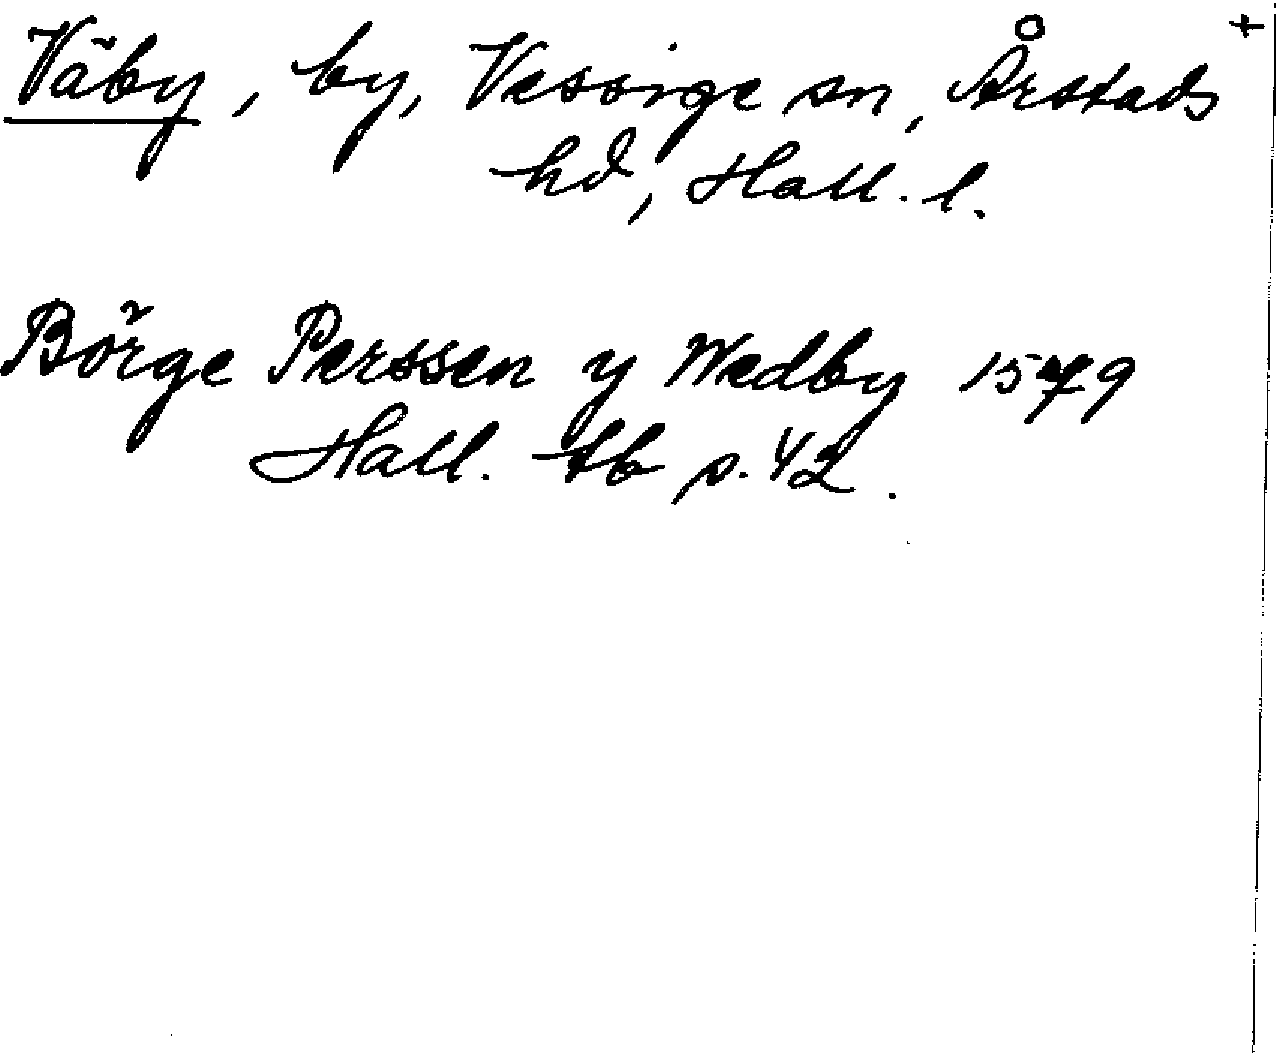 Väby, by, Vessige sn, Årstads +
hd, Hall. l.
Börge Perssen y Wedby 1579
Hall. tb s. 42.